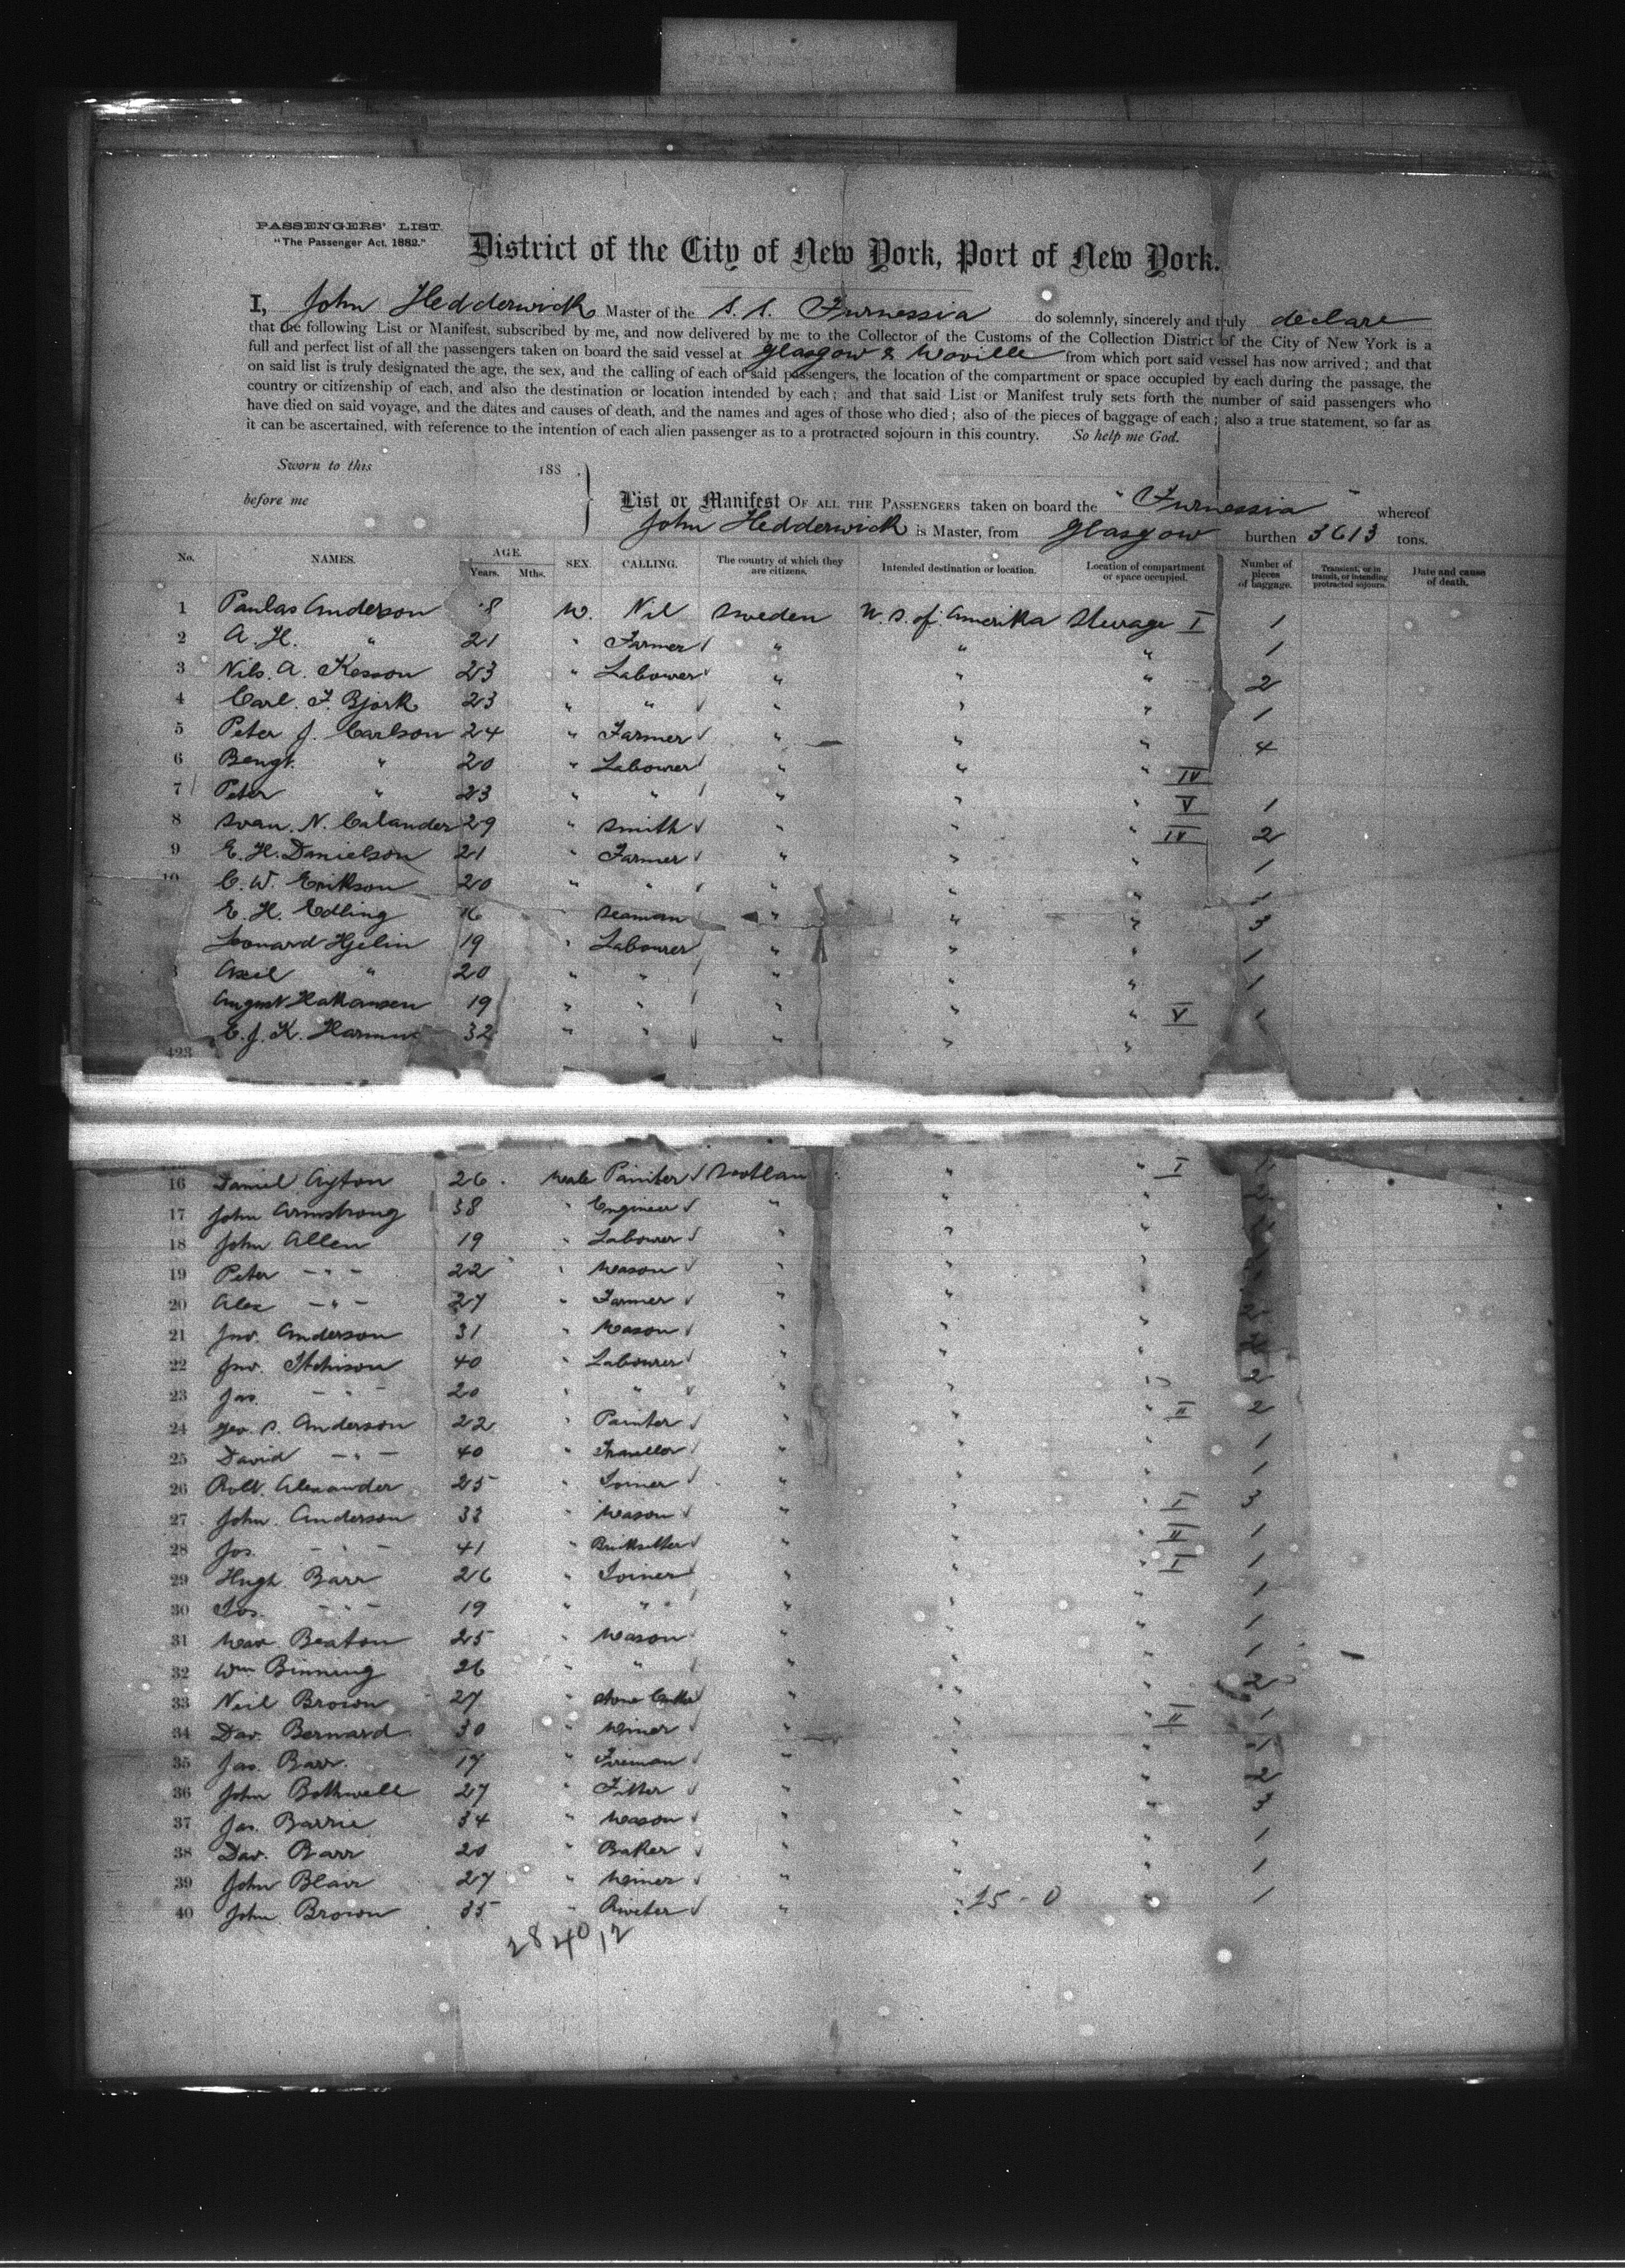 PASSENGERS' LIST.
"The Passenger Act, 1882."
District of the City of New York, Port of New York.
I, John Hedderwick Master of the S. S. Furnessia do solemnly, sincerely and truly declare
that the following List or Manifest, subscribed by me, and now delivered by me to the Collector of the Customs of the Collection District of the City of New York is a
full and perfect list of all the passengers taken on board the said vessel at Glasgow & Moville from which port said vessel has now arrived; and that
on said list is truly designated the age, the sex, and the calling of each of said passengers, the location of the compartment or space occupied by each during the passage, the
country or citizenship of each, and also the destination or location intended by each; and that said List or Manifest truly sets forth the number of said passengers who
have died on said voyage, and the dates and causes of death, and the names and ages of those who died; also of the pieces of baggage of each; also a true statement, so far as
it can be ascertained, with reference to the intention of each alien passenger as to a protracted sojourn in this country. So help me God.
Sworn to this 188 .
before me
List or Manifest OF ALL THE PASSENGERS taken on board the "Furnessia" whereof
John Hedderwick is Master, from Glasgow burthen 3613 tons.
No. NAMES. AGE. Years. Mths. SEX. CALLING. The country of which they are citizens. Intended destination or location. Location of compartment or space occupied. Number of pieces of baggage. Transient, or in transit, or intending protracted sojourn. Date and cause of death.
1 Paulas Anderson 8 M. Nil Sweden U. S. of Amerika Steerage I 1
2 A. H. " 21 " Farmer " " " 1
3 Nils. A. Kesson 23 " Labourer " " " 2
4 Carl. F. Bjork 23 " " " " " 1
5 Peter J. Carlson 24 " Farmer " " " 4
6 Bengt. " 20 " Labourer " " " IV
7 Peter " 23 " " " " " V 1
8 Svan. N. Calander 29 " Smith " " " IV 2
9 E. H. Danielson 21 " Farmer " " " 1
10 C. W. Erikson 20 " " " " " 1
E. H. Edling 16 Seaman " " " 3
Leonard Hjelin 19 " Labourer " " " 1
Axel " 20 " " " " " 1
August Hakansen 19 " " " " " V 1
E. J. K. 32 " " " " "
423
16 Daniel Ayton 26 Male Painter Scotlan " " I 1
17 John Armstrong 38 " Engineer " " " 2
18 John Allen 19 " Labourer " " "
19 Peter - " - 22 " Mason " " "
20 Alex - " - 27 " Farmer " " " 2
21 Jno. Anderson 31 " Mason " " "
22 Jno. Itchison 40 " Labourer " " " 2
23 Jas. - " - 20 " " " " "
24 Geo. S. Anderson 22 " Painter " " " II 2
25 David - " - 40 " Traveller " " " 1
26 Robt. Alexander 25 " Joiner " " " 1
27 John Anderson 33 " Mason " " " I 3
28 Jos. - " - 41 " Bricksetter " " " II 1
29 Hugh Barr 26 " Joiner " " " I 1
30 Jos. - " - 19 " " " " " 1
31 Beaton 25 " Mason " " " 1
32 Wm Binning 26 " " " " " 1
33 Neil Brown 27 " Stone Cutter " " " 2
34 Dav. Bernard 30 " Miner " " " II 1
35 Jas. Barr 17 " Fireman " " " 1
36 John Bothwell 27 " Fitter " " " 2
37 Jas. Barrie 34 " Mason " " " 3
38 Dav. Barr 20 " Baker " " " 1
39 John Blair 27 " Miner " " " 1
40 John Brown 35 " Riveter " 25 - 0 " 1
28 40 12